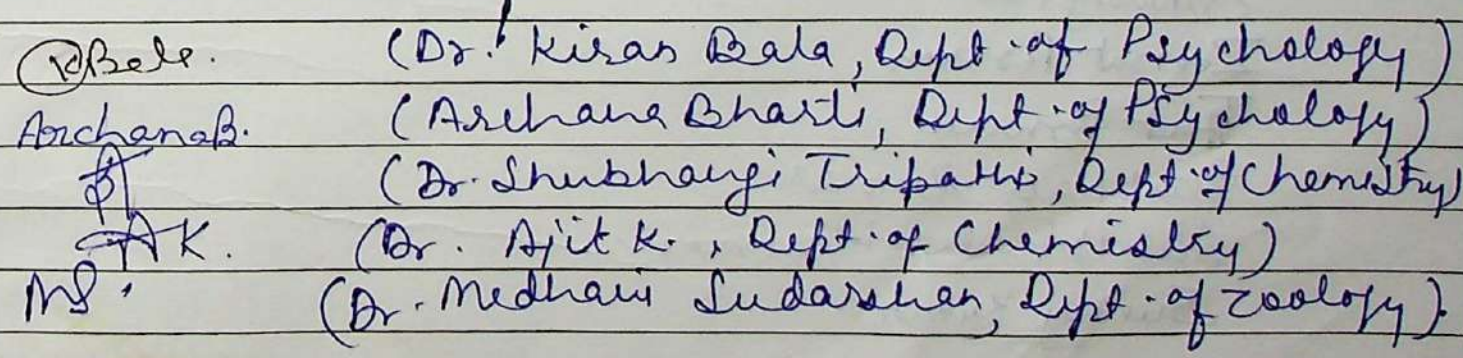 KBala. (Dr. Kiran Bala, Dept. of Psychology)
ArchanaB. (Archana Bharti, Dept. of Psychology)
(Dr. Shubhangi Tripathi, Dept. of Chemistry)
AK. (Dr. Ajit K., Dept. of Chemistry)
MS. (Dr. Medhavi Sudarshan, Dept. of Zoology).